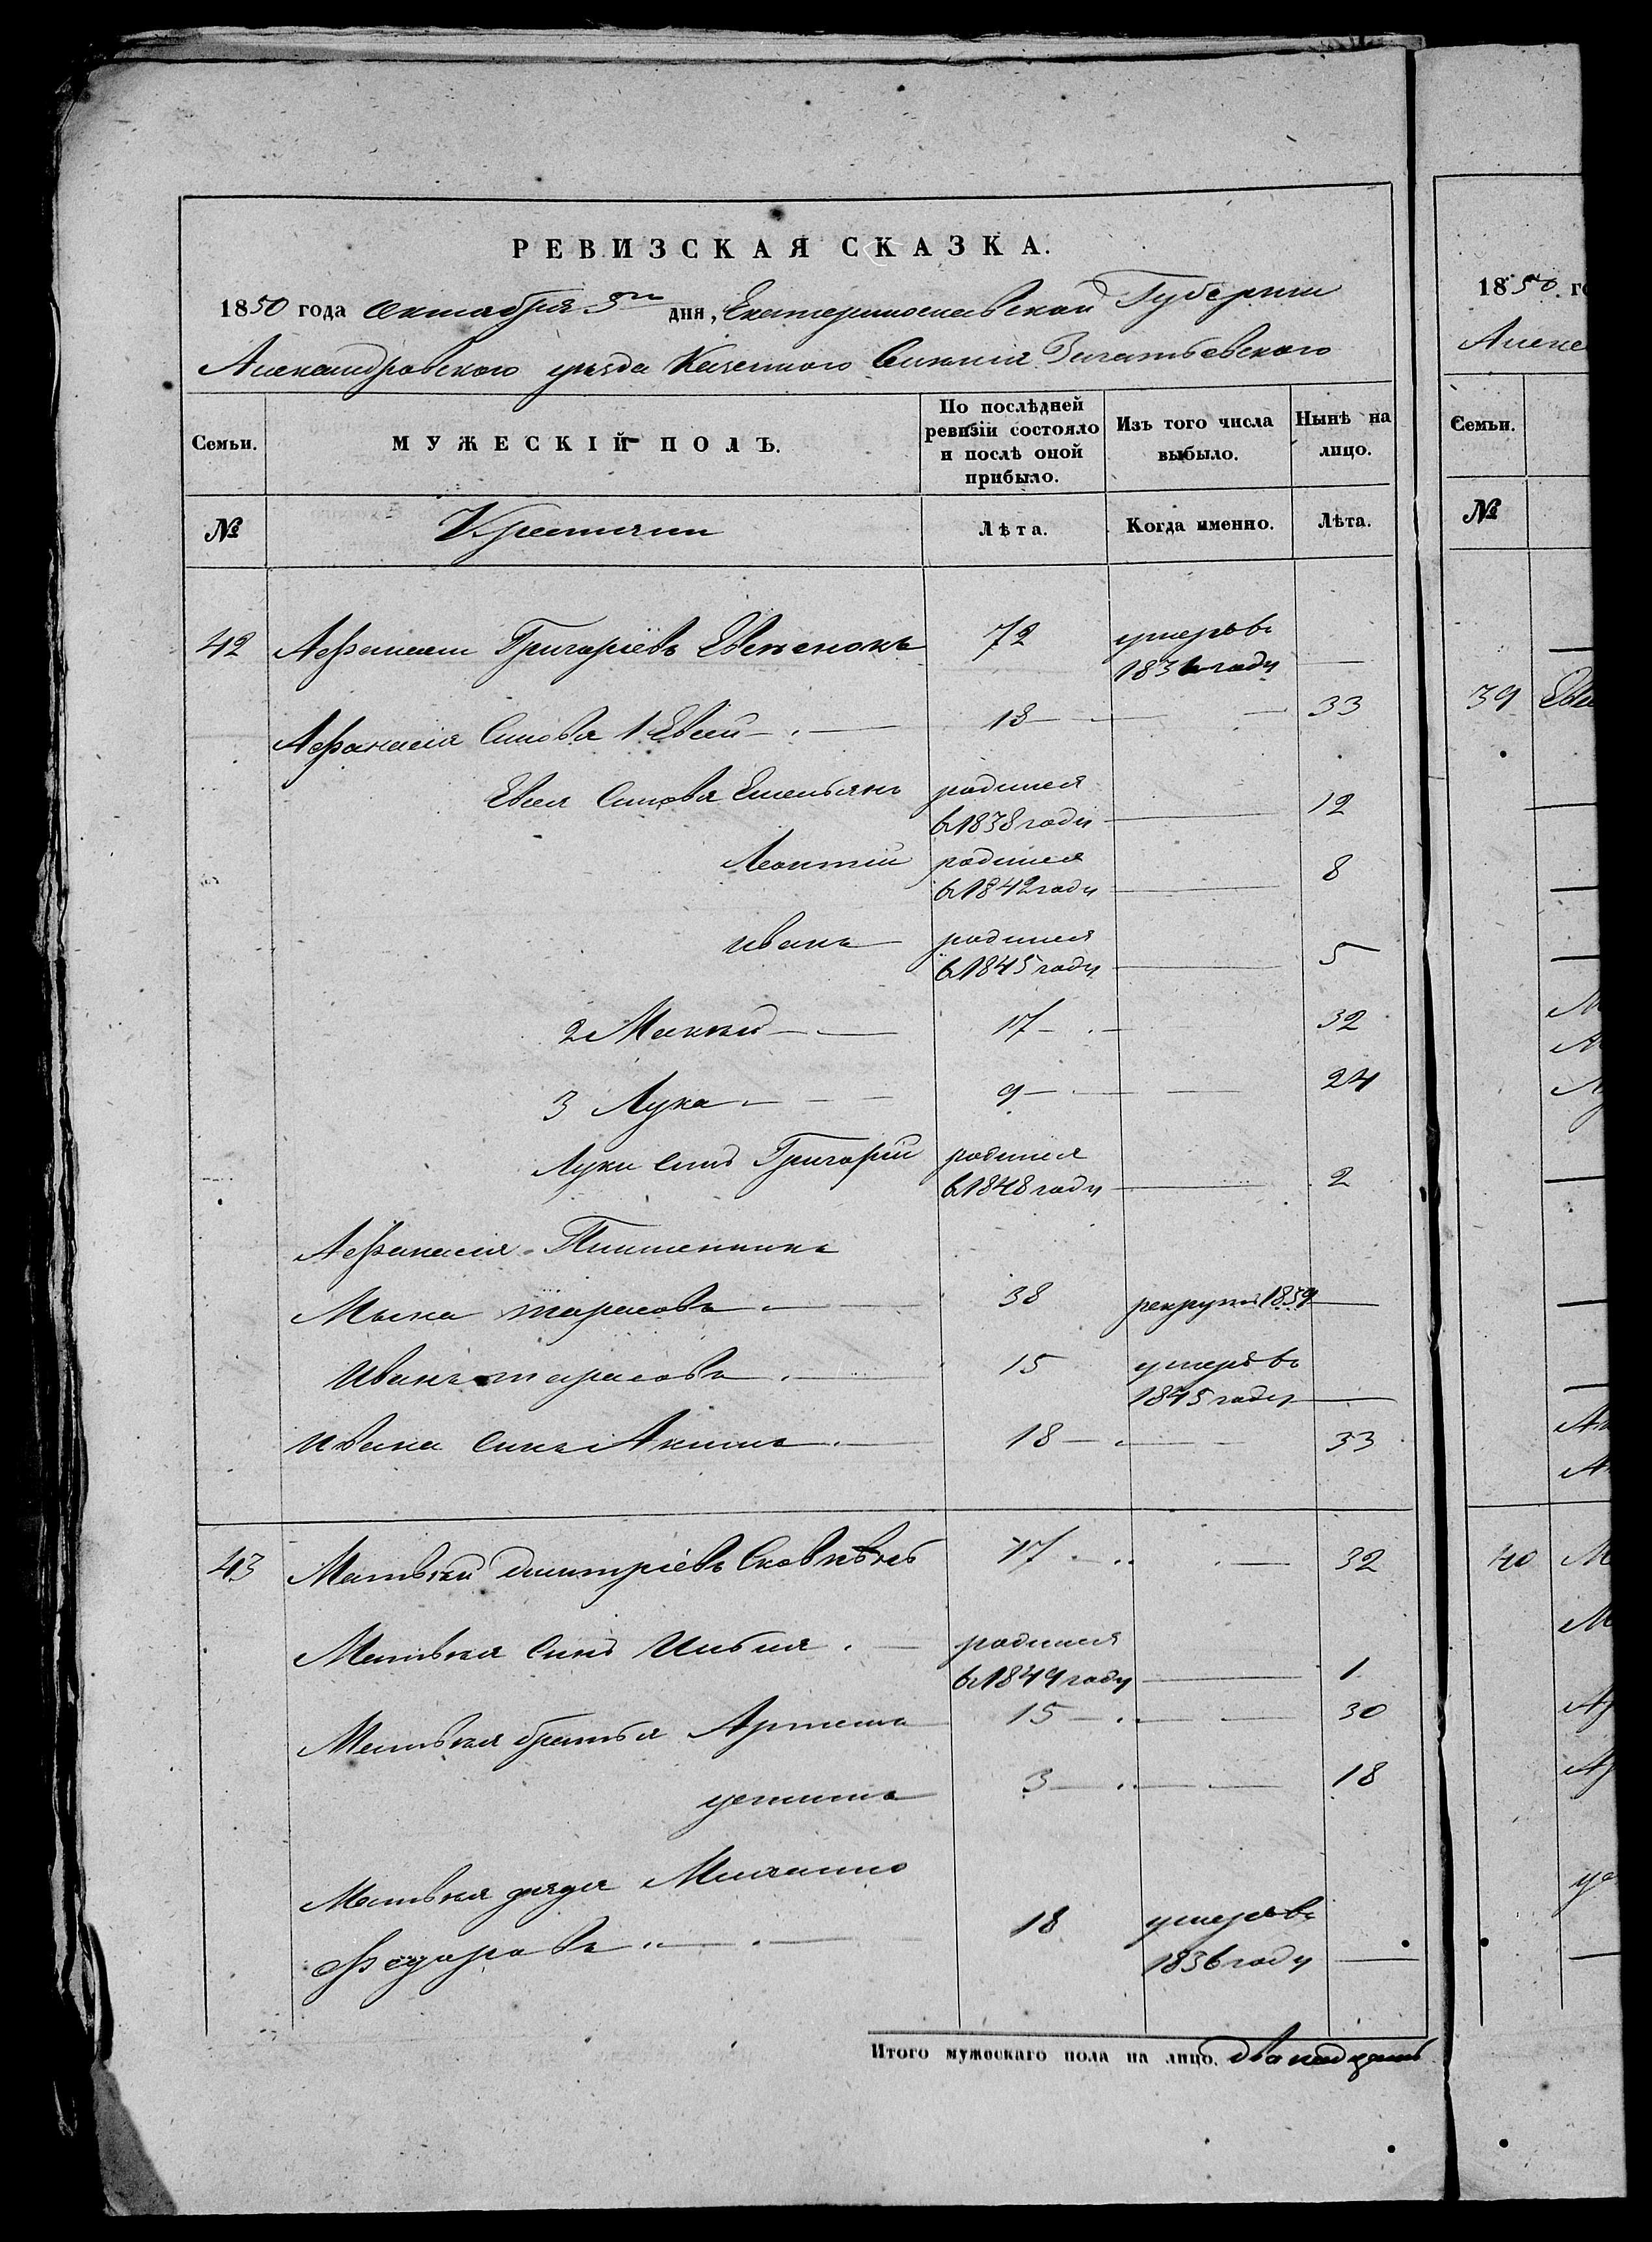 РЕВИЗСКАЯ СКАЗКА.
1850 года Октября 5го дня, Екатеринославской Губернии
Александровского уезда Казенного Селения
Семьи. МУЖЕСКІЙ ПОЛЪ. По послѣдней ревизіи состояло и послѣ оной прибыло. Изъ того числа выбыло. Нынѣ на лицо.
№ Крестьяни Лѣта. Когда именно. Лѣта.
42 Афанасий Григорiевъ 72 умеръ въ
183 году —
Афанасiя Синовья 1 Евсей — 18 — 33
Евсея Синовья Емельянъ родился
в 1838 году — 12
Леонтiй родился
в 1842 году — 8
иванъ родился
в 1845 году — 5
2 17 — 32
3 Лука — 9 — 24
Луки Синъ Григорiй родился
в 1848 году — 2
Афанасiя Племенники
тарасовъ — 38 рекрутъ 1839 —
Иванъ тарасовъ — 15 умеръ въ
1845 году —
ивана Синъ Акимъ — 18 — 33
43 Матвей дмитрiевъ 17 — 32
Матвея Синъ Илья — родился
в 1849 году — 1
Матвея братья Артемъ 15 — 30
устимъ 3 — 18
Матвея дядя Михаило
Федоровъ — 18 умеръ въ
1836 году —
Итого мужескаго пола на лицо. двенадцать
1850 го
Алекс
Семьи.
№
39 Евс
40 М